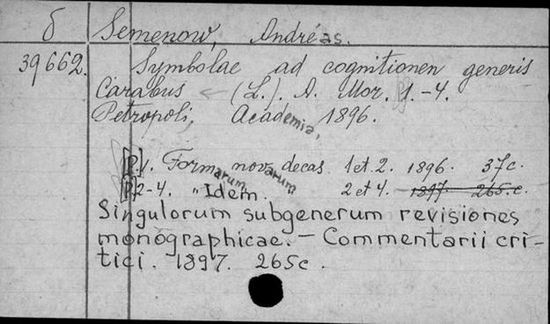 б Semenow, Andréas.
39662. Symbolae ad cognitionen generis
Carabus (L.). A. Mor. 1.-4.
Petropoli, Academia, 1896.
P.1. Formarum novarum decas 1 et 2. 1896. 37c.
P.2-4. "Idem." 2 et 4. 1897 265.c.
Singulorum subgenerum revisiones
monographicae. – Commentarii cri-
tici. 1897. 265c.